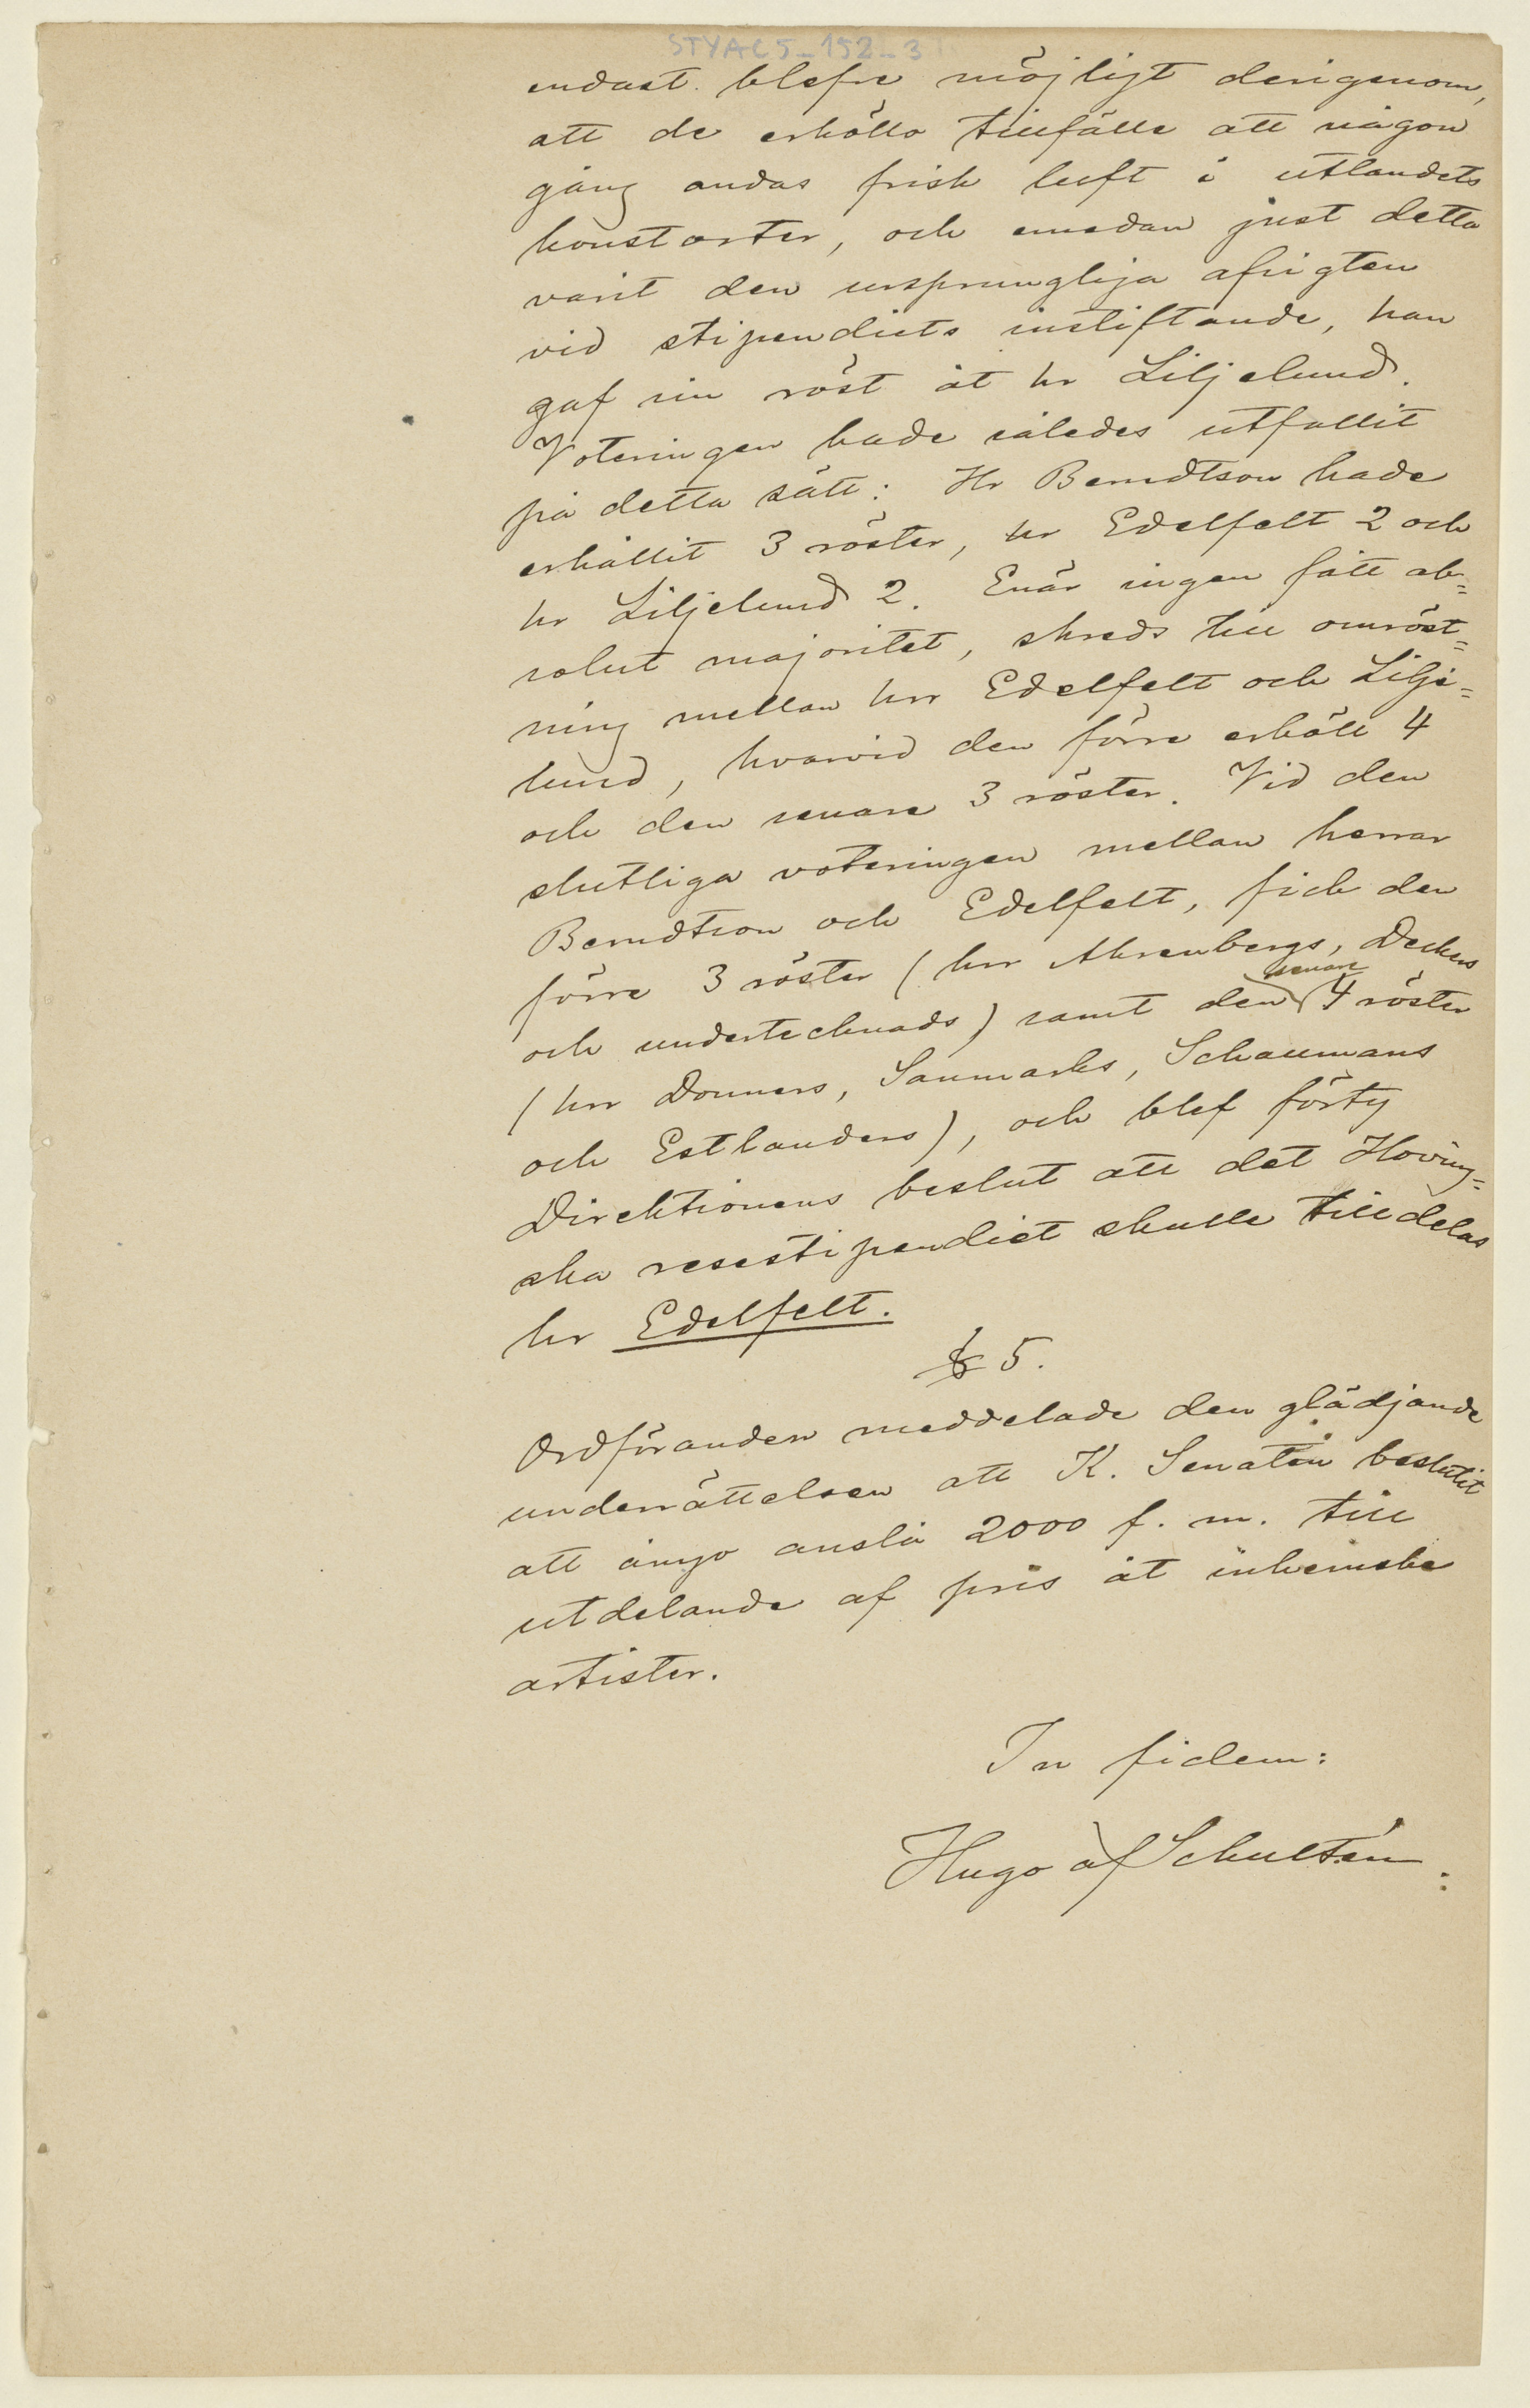 STYAC5_152_3
endast blefve möjligt derigenom,
att de erhölla tillfälle att någon
gång andas frisk luft i utlandets
konstorter, och emedan just detta
varit den ursprungliga afsigten
vid stipendiets instiftande, han
gaf sin röst åt hr Liljelund.
Voteringen hade således utfallit
på detta sätt: Hr Berndtson hade
erhållit 3 röster, hr Edelfelt 2 och
hr Liljelund 2. Enär ingen fått ab=
solut majoritet, skreds till omröst=
ning mellan hrr Edelfelt och Lilje=
lund, hvarvid den förre erhöll 4
och den senare 3 röster. Vid den
slutliga voteringen mellan herrar
Berndtson och Edelfelt, fick den
förre 3 röster (hrr Ahrenbergs, Deckers
senare
och undertecknads) samt den 4 röster
(hrr Donners, Sanmarks, Schaumans
och Estlanders), och blef förty
Direktionens beslut att det Hoving=
ska resestipendiet skulle tilldelas
hr Edelfelt.
§ 5.
Ordföranden meddelade den glädjande
underrättelsen att K. Senaten beslutit
att ånyo anslå 2000 f. m. till
utdelande af pris åt inhemska
artister.
In fidem:
Hugo af Schultén